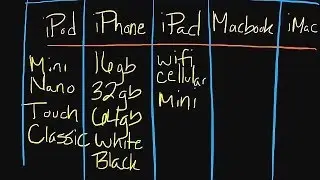 iPod iPhone iPad Macbook iMac
Mini 16gb wifi
Nano 32gb cellular
Touch 64gb Mini
Classic White
Black